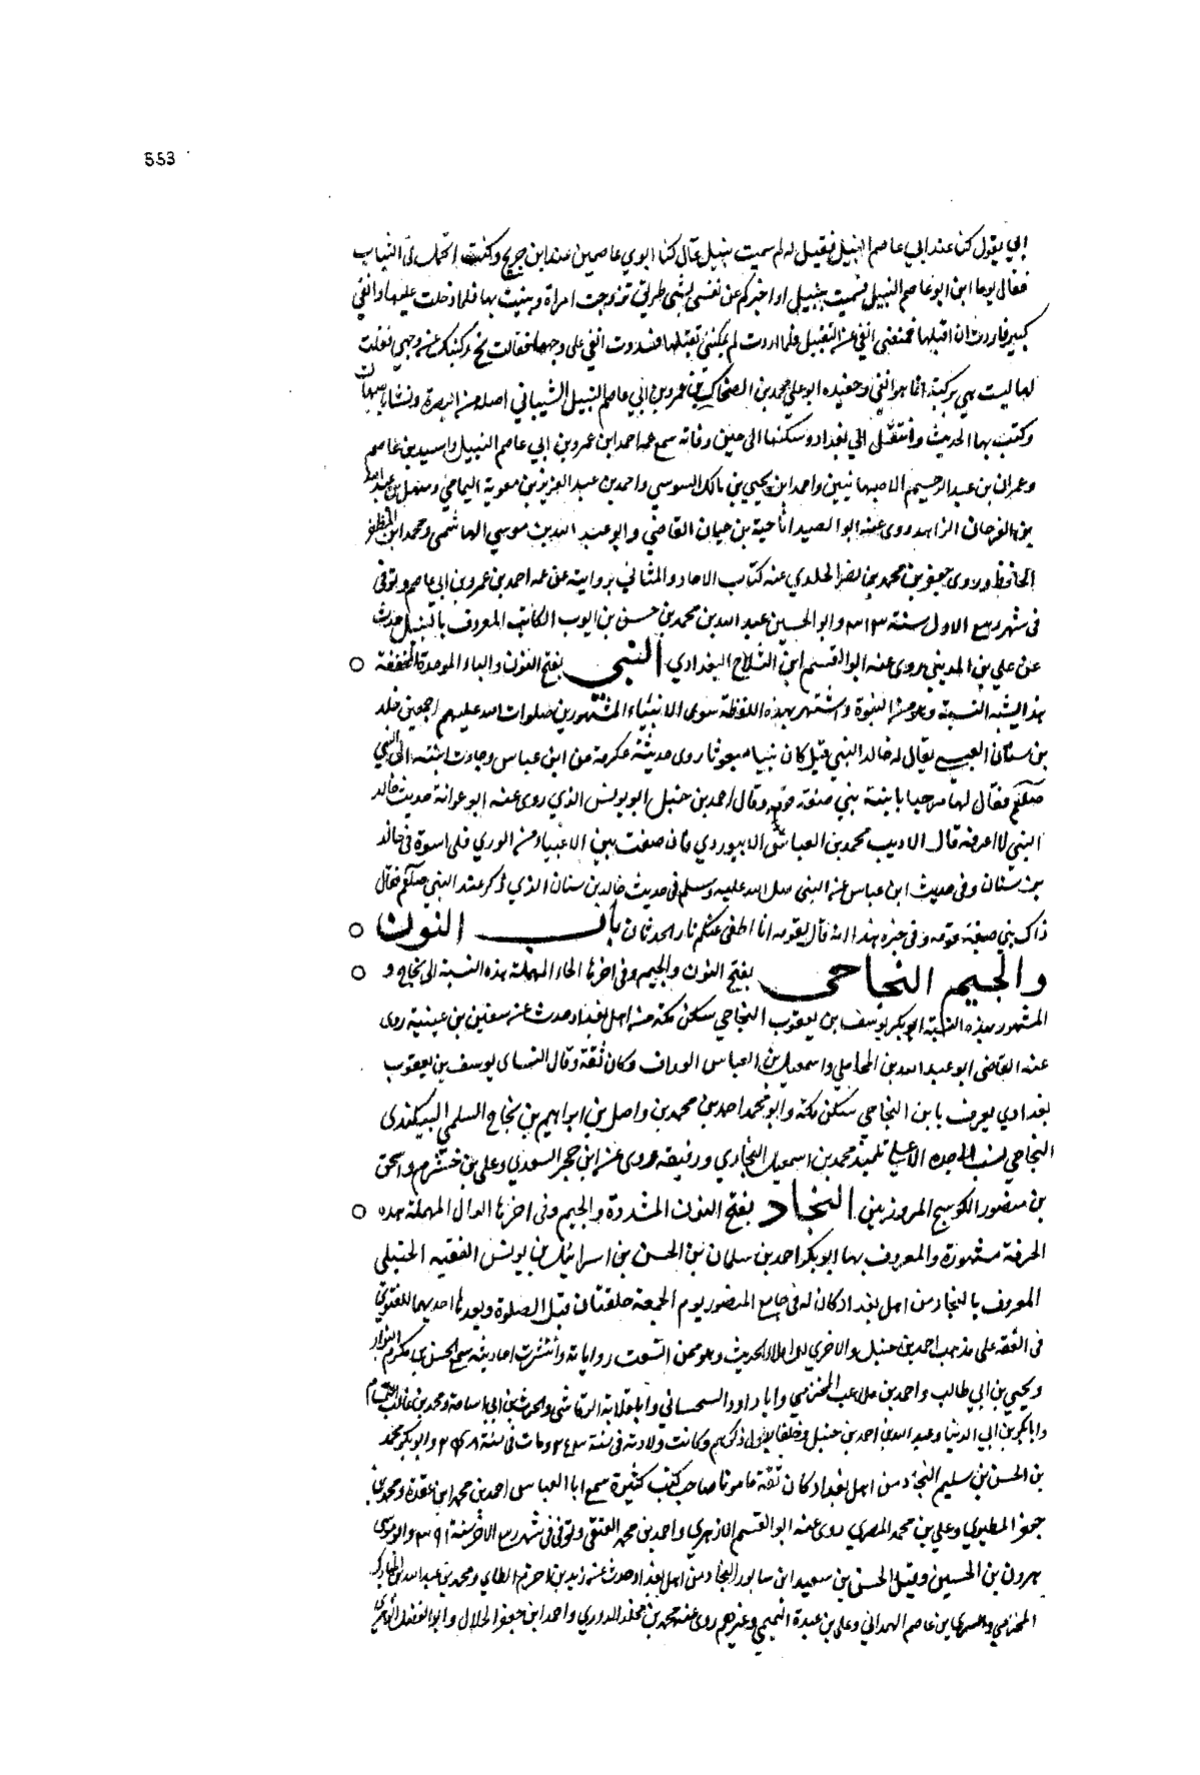 553
ابي يقول كنا عند ابي عاصم النبيل فقيل له لم سميت بنبيل قال كنا ابوي عاصمين عند ابن جريج وكنت اتجمل في الثياب
فقال يوما اين ابو عاصم النبيل فسميت بنبيل او اخبركم عن نفسى بشى طريق تزوجت امراة وبنيت بها فلما دخلت عليها وانفي
كبير فاردت ان اقبلها فمنعنى انفي عن التقبيل فلما اردت لم يمكنني تقبيلها فشددت انفي على وجهها فقالت نح ركبتك عن وجهي فقلت
لها ليت هي بركبة انما هو انفي وحفيده ابو علي محمد بن الضحاك بن عمرو بن ابي عاصم النبيل الشيباني اصله من البصرة ونشا باصبهان
وكتب بها الحديث وانتقل الي بغداد وسكنها الى حين وفاته سمع عمه احمد ابن عمرو بن ابي عاصم النبيل واسيد بن عاصم
وعمران بن عبد الرحيم الاصبهانيين واحمد ابن يحيي بن مالك السوسي واحمد بن عبد العزيز بن معوية اليمامي وسهل بن عبد الله
بن الفرحان الزاهد روى عنه ابو الصيدا ناحية بن حيان القاضي وابو عبد الله بن موسي الهاشمى ومحمد ابن المظفر
الحافظ وروى جعفر بن محمد بن نصر الخلدي عنه كتاب الاحاد والمثاني بروايته عن عمه احمد بن عمرو بن ابي عاصم وتوفى
فى شهر ربيع الاول سنة ٣١٣ وابو الحسين عبد الله بن محمد بن حسن بن ايوب الكاتب المعروف بالنبيل حدث
عن علي بن المديني روى عنه ابو القسم ابن الثلاج البغدادي النبي بفتح النون والباء الموحدة المخففة
هذا يشبه النسبة وهو من النبوة واشتهر بهذه اللفظة سوى الانبياء المشهورين صلوات الله عليهم اجمعين خالد
بن سنان العبسي يقال له خالد النبي قيل كان نبيا مبعوثا روى حديثه عكرمة من ابن عباس وجاءت ابنته الى النبي
صلعم فقال لها مرحبا بابنة نبي ضيعه قومه وقال احمد بن حنبل ابو يونس الذي روى عنه ابو عوانة حديث خالد
النبي لا اعرفه قال الاديب محمد بن العباس الابيوردي فان ضعت بين الاغبياء من الوري فلي اسوة في خالد
بن سنان وفى حديث ابن عباس عن النبى صلى الله عليه وسلم فى حديث خالد بن سنان الذي ذكر عند النبي صلعم فقال
ذاك نبي ضيعه قومه وفى خبره هذا انه قال لقومه انا اطفى عنكم نار الحدثان باب النون
والجيم النجاحى بفتح النون والجيم وفى اخرها الحاء المهملة هذه النسبة الى نجاح و
المشهور بهذه النسبة ابو بكر يوسف ابن يعقوب النجاحي سكن مكة من اهل بغداد حدث عن سفين بن عيينة روى
عنه القاضى ابو عبد الله بن المحاملي واسمعيل بن العباس الوراق وكان ثقة وقال النساي يوسف بن يعقوب
بغدادي يعرف بابن النجاحي سكن مكة وابو محمد احمد بن محمد بن واصل بن ابراهيم بن نجاح السلمي البيكندى
النجاحي نسب الى جده الاعلي تلميذ محمد بن اسمعيل البخاري ورفيقه روى عن ابن حجر السعدي وعلي بن خشرم واسحق
بن منصور الكوسج المروزيين النجاد بفتح النون المشددة والجيم وفى اخرها الدال المهملة هذه
الحرفة مشهورة والمعروف بها ابو بكر احمد بن سلمان بن الحسن بن اسرائيل بن يونس الفقيه الحنبلي
المعروف بالنجاد من اهل بغداد كان له في جامع المنصور يوم الجمعة حلقتان قبل الصلوة وبعدها احديهما للفتوي
فى الفقه على مذهب احمد بن حنبل والاخري لاملاء الحديث وهو ممن اتسعت رواياته وانتشرت احاديثه سمع الحسن بن مكرم البزاز
ويحيي بن ابي طالب واحمد بن ملاعب المخرمي وابا داود السجستاني وابا قلابة الرقاشي والحرث بن ابي اسامة ومحمد بن غالب التمتام
وابا بكر بن ابي الدنيا وعبد الله بن احمد بن حنبل وخلقا يطول ذكرهم وكانت ولادته فى سنة ٢٥٣ ومات في سنة ٣٤٨ وابو بكر محمد
بن الحسن بن سليم النجاد من اهل بغداد كان ثقة مامونا صاحب كتب كثيرة سمع ابا العباس احمد بن محمد ابن عقدة ومحمد بن
جعفر المطيري وعلي بن محمد المصري روى عنه ابو القسم الازهري واحمد بن محمد العتيقي وتوفى فى شهر ربيع الاخر سنة ٣٩١ وابو موسى
هرون بن الحسين وقيل الحسن بن سعيد ابن سابور النجاد من اهل بغداد حدث عن زيد بن اخزم الطاي ومحمد بن عبد الله ابن المبارك
المخرمي والسري بن عاصم الهمداني وعلي بن عبدة التميمي وغيرهم روى عنه محمد بن مخلد الدوري واحمد ابن جعفر الخلال وابو الفضل الزهري